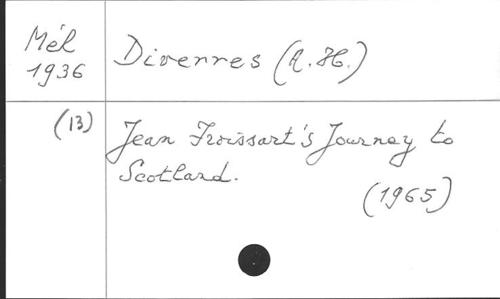 Mél
1936
Diverres (A. H.)
(13)
Jean Froissart's Journey to
Scotland.
(1965)